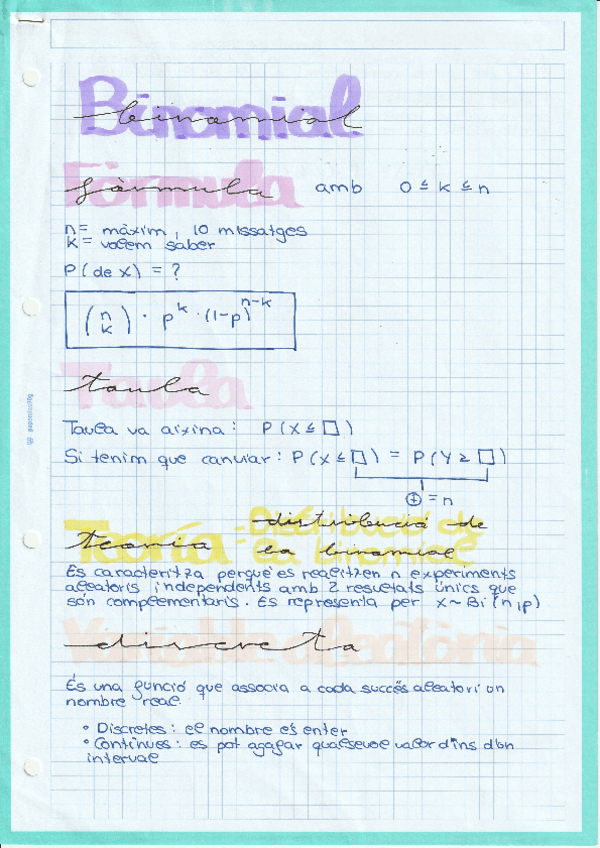 Binomial
binomial
Fórmula
fórmula amb 0 ≤ k ≤ n
n = màxim, 10 missatges
k = volem saber
P(de x) = ?
(n k) · p^k · (1-p)^n-k
Taula
taula
Taula va aixina: P(X ≤ □)
Si tenim que canviar: P(X ≤ □) = P(Y ≥ □)
⊕ = n
Teoría = Distribució de la binomial
teoria distribució de la binomial
Es caracteritza perquè es realitzen n experiments
aleatoris independents amb 2 resultats únics que
són complementaris. Es representa per x ~ Bi(n,p)
Variable aleatòria
discreta
És una funció que associa a cada succés aleatori un
nombre real.
• Discretes: el nombre és enter
• Contínues: es pot agafar qualsevol valor dins d'un
interval